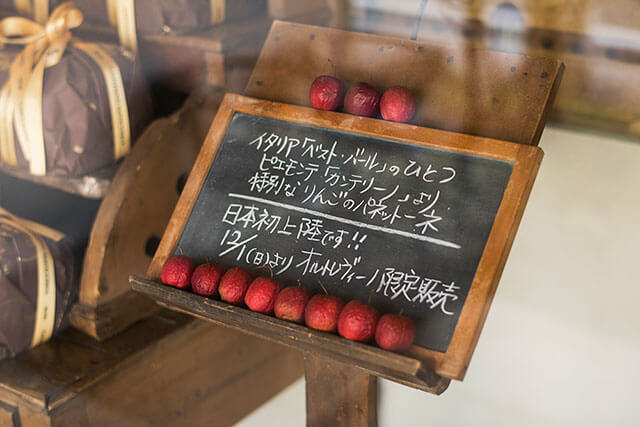 イタリア「ベスト・バール」のひとつ
ピエモンテ「カンテリーノ」より
特別なりんごのパネットーネ
日本初上陸です!!
12/1(日)より オルトレヴィーノ限定販売